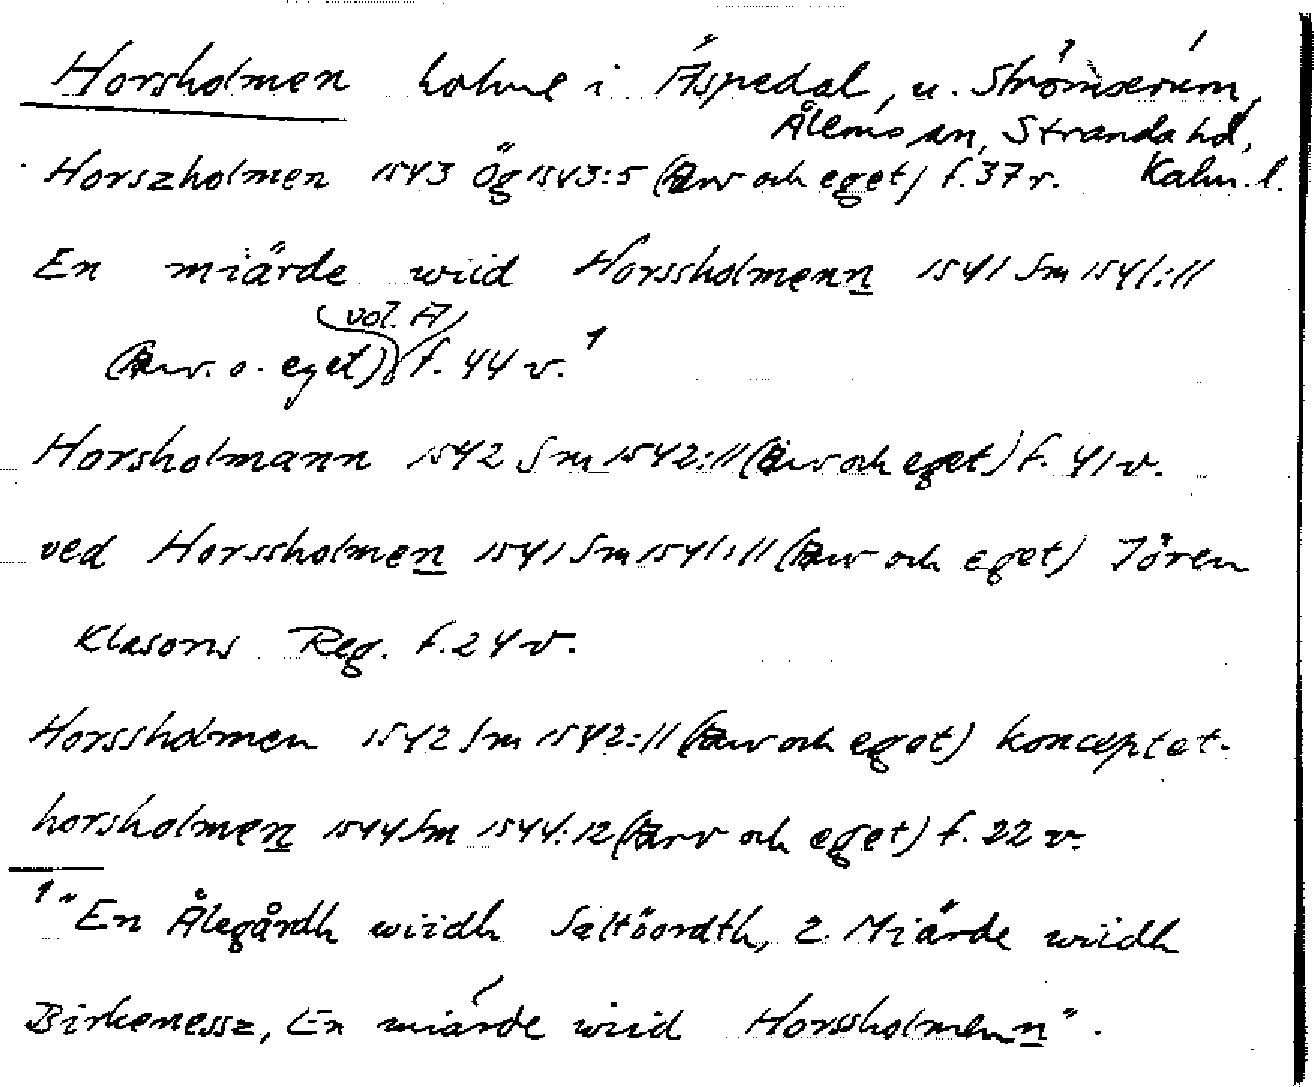 Horsholmen holme i Äspedal, u. Strömserum,
Ålems sn, Stranda hd,
Horszholmen 1543 Ög 1543:5 (Arv och eget) f. 37 r. Kalm. l.
En miärde wiid Horssholmenn 1541 Sm 1541:11
vol. A
(Arv. o. eget) f. 44 v.¹
Horsholmann 1542 Sm 1542:11 (Arv och eget) f. 41 v.
ved Horssholmen 1541 Sm 1541:11 (Arv och eget) Jören
Klasons Reg. f. 24 v.
Horssholmen 1542 Sm 1542:11 (Arv och eget) konceptet.
horsholmen 1544 Sm 1544:12 (Arv och eget) f. 22 v.
¹ "En Ålegårdh wiidh Saltöordth, 2 Miärde wiidh
Birkenessz, En miärde wiid Horssholmenn".